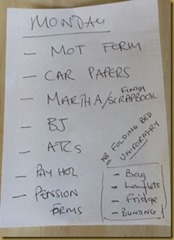 MONDAY
— MOT FORM
— CAR PAPERS
— MARTHA/FINISH SCRAPBOOK
— BJ
— ATCs
— PAY HOL
— PENSION FORMS
NB FOLDING BED
UNIFORM RY
— Bag
— Leaflets
— Fridge
— BUNTING